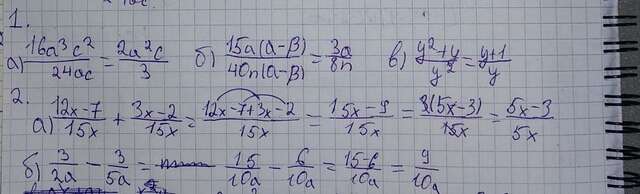 1.
а) 16a³c²/24ac = 2a²c/3 б) 15a(a-в)/40n(a-в) = 3a/8n в) y²+y/y² = y+1/y
2.
а) 12x-7/15x + 3x-2/15x = 12x-7+3x-2/15x = 15x-9/15x = 3(5x-3)/15x = 5x-3/5x
б) 3/2a - 3/5a = 15/10a - 6/10a = 15-6/10a = 9/10a